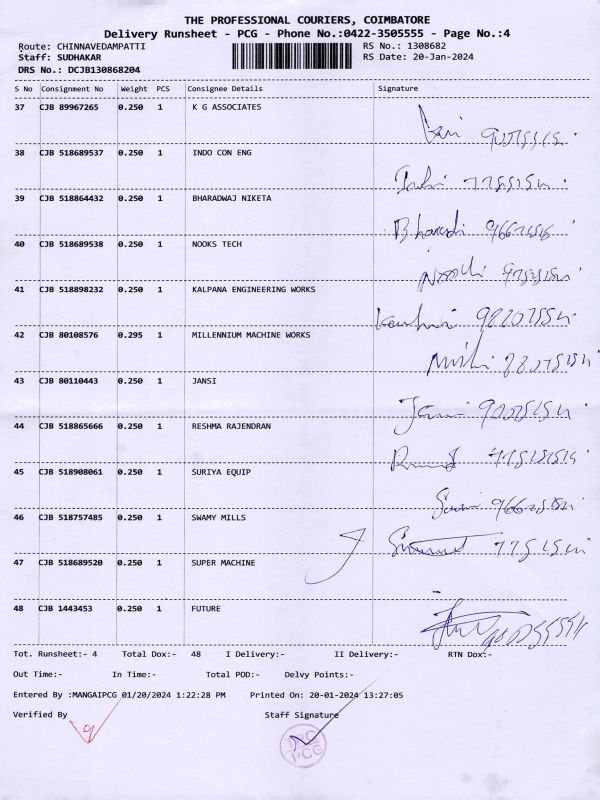 THE PROFESSIONAL COURIERS, COIMBATORE
Delivery Runsheet - PCG - Phone No.:0422-3505555 - Page No.:4
Route: CHINNAVEDAMPATTI RS No.: 1308682
Staff: SUDHAKAR RS Date: 20-Jan-2024
DRS No.: DCJB130868204
S No Consignment No Weight PCS Consignee Details Signature
37 CJB 89967265 0.250 1 K G ASSOCIATES
38 CJB 518689537 0.250 1 INDO CON ENG
39 CJB 518864432 0.250 1 BHARADWAJ NIKETA
40 CJB 518689538 0.250 1 NOOKS TECH
41 CJB 518898232 0.250 1 KALPANA ENGINEERING WORKS
42 CJB 80108576 0.295 1 MILLENNIUM MACHINE WORKS
43 CJB 80110443 0.250 1 JANSI
44 CJB 518865666 0.250 1 RESHMA RAJENDRAN
45 CJB 518908061 0.250 1 SURIYA EQUIP
46 CJB 518757485 0.250 1 SWAMY MILLS
47 CJB 518689520 0.250 1 SUPER MACHINE
48 CJB 1443453 0.250 1 FUTURE
Tot. Runsheet:- 4 Total Dox:- 48 I Delivery:- II Delivery:- RTN Dox:-
Out Time:- In Time:- Total POD:- Delvy Points:-
Entered By :MANGAIPCG 01/20/2024 1:22:28 PM Printed On: 20-01-2024 13:27:05
Verified By Staff Signature
PCG